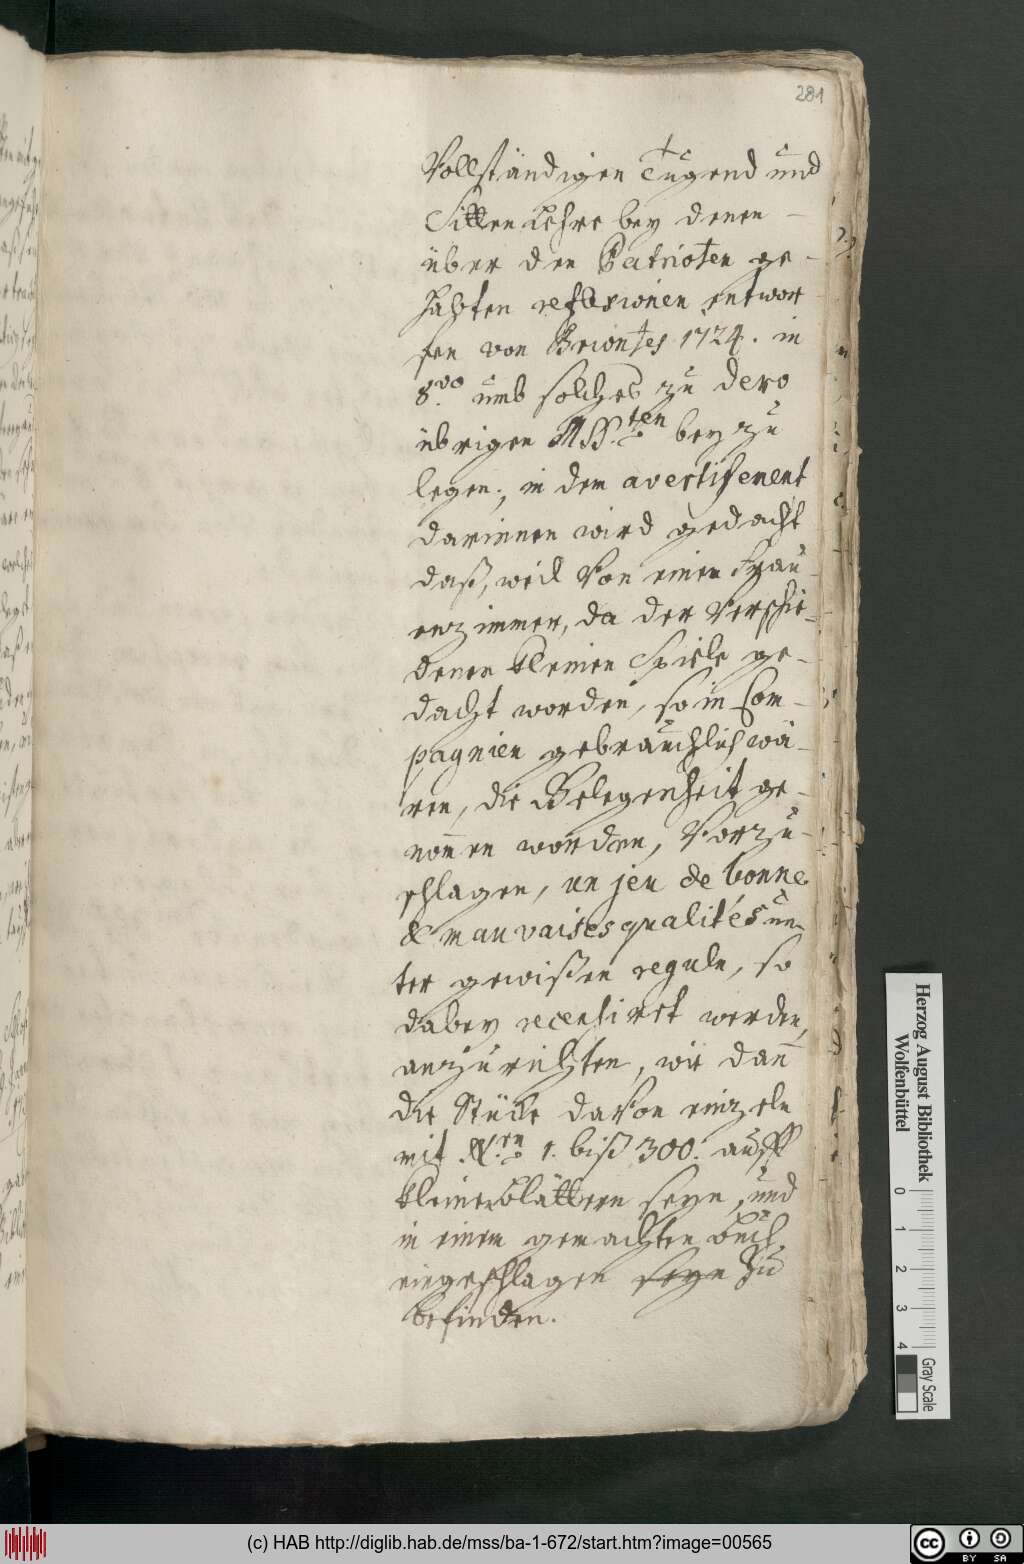 281
Vollständigen Tugend und
Sitten Lehre bey denen
über den Patrioten ge-
habten reflexionen entwor
fen von Briontes 1724. in
8.vo umb solches zu dero
übrigen MSS.ten bey zu
legen; in dem avertisement
darinnen wird gedacht
daß, weil Von einem Frau
enzimmer, da der Verschie-
denen kleinen Spiele ge-
dacht worden, so in Com-
pagnien gebräuchlich wä-
ren, die Gelegenheit ge-
nom̄en worden, Vorzu-
schlagen, un jeu de bonne
& mauvaises qualités un-
ter gewißen reguln, so
dabey recensiret werden,
anzurichten, wie dan̄
die Stücke davon einzeln
mit N.en 1. biß 300. auff
kleinen blättern seyn, und
in einem gemachten buch
eingeschlagen seyn zu
befinden.
Herzog August Bibliothek
Wolfenbüttel
0 1 2 3 4
Gray Scale
(c) HAB http://diglib.hab.de/mss/ba-1-672/start.htm?image=00565
cc BY SA